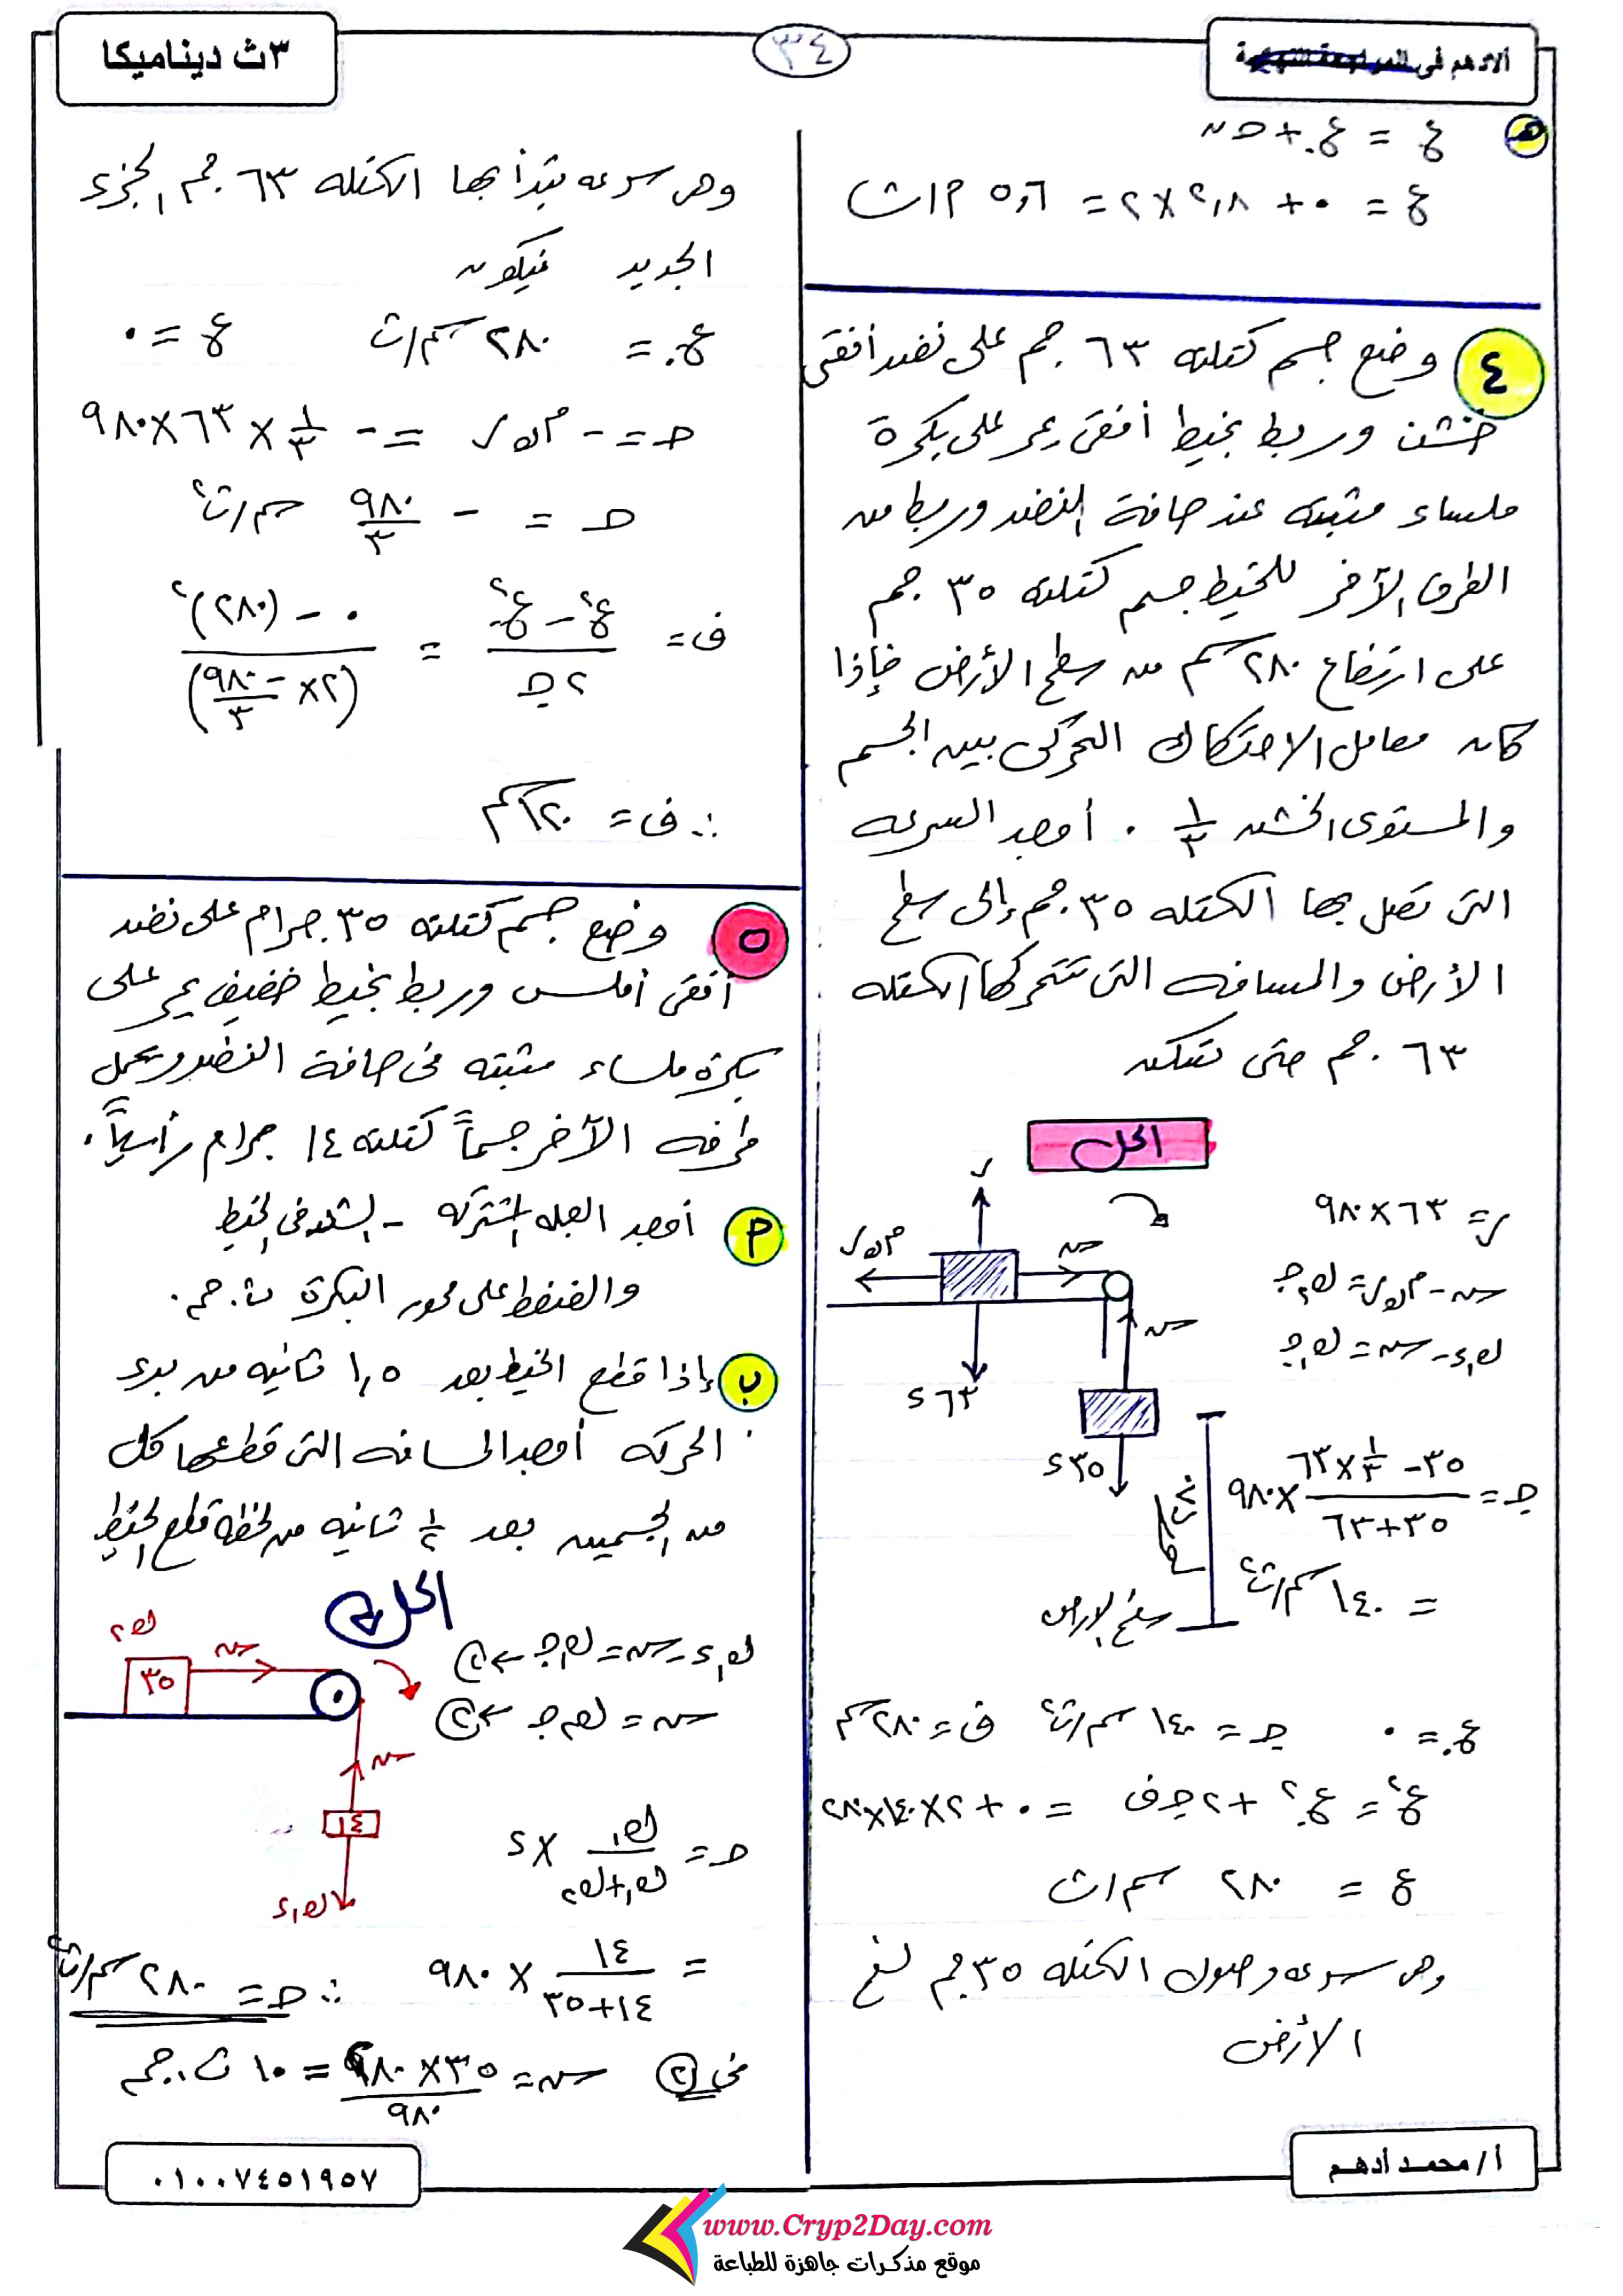 الادهم فى
٣٤
٣ث ديناميكا
هـ ع = ع. + حـ ن
ع = ٠ + ٢,٨ × ٢ = ٥,٦ م/ث
٤ وضع جسم كتلته ٦٣ جم على نضد أفقى
خشن وربط بخيط أفقى يمر على بكرة
ملساء مثبته عند حافة النضد وربط من
الطرف الآخر للخيط جسم كتلته ٣٥ جم
على ارتفاع ٢٨٠ سم من سطح الأرض فإذا
كان معامل الاحتكاك الحركى بين الجسم
والمستوى الخشن ١/٣ . أوجد السرعه
التى تصل بها الكتله ٣٥ جم إلى سطح
الأرض والمسافه التى تتحركها الكتله
٦٣ جم حتى تسكن
الحل
ر
م ك ر
ش
ش
٦٣ ء
٣٥ ء
٢٨٠ سم
سطح الارض
ر = ٦٣ × ٩٨٠
ش - م ك ر = ك٢ جـ
ك١ ء - ش = ك١ جـ
جـ = (٣٥ - ١/٣ × ٦٣)/(٣٥ + ٦٣) × ٩٨٠
= ١٤٠ سم/ث٢
ع. = ٠ جـ = ١٤٠ سم/ث٢ ف = ٢٨٠ سم
ع٢ = ع.٢ + ٢ جـ ف = ٠ + ٢ × ١٤٠ × ٢٨٠
ع = ٢٨٠ سم/ث
وهى سرعه وصول الكتله ٣٥ جم لسطح
الأرض
وهى سرعه تبدأ بها الكتله ٦٣ جم الجزء
الجديد فيكون
ع. = ٢٨٠ سم/ث ع = ٠
حـ = - م ك ر = - ١/٣ × ٦٣ × ٩٨٠
حـ = - ٩٨٠/٣ سم/ث٢
ف = (ع٢ - ع.٢)/(٢ جـ) = (٠ - (٢٨٠)٢)/(٢ × - ٩٨٠/٣)
∴ ف = ١٢٠ سم
٥ وضع جسم كتلته ٣٥ جرام على نضد
أفقى أملس وربط بخيط خفيف يمر على
بكرة ملساء مثبته فى حافة النضد ويحمل
طرفه الآخر جسماً كتلته ١٤ جرام رأسياً .
م أوجد العجله المشتركه - الشد فى الخيط
والضغط على محور البكرة ث. جم .
ب إذا قطع الخيط بعد ١,٥ ثانيه من بدء
الحركه أوجد المسافه التى قطعها كل
من الجسمين بعد ١/٢ ثانيه من لحظه قطع الخيط
الحل
ك٢
٣٥
ش
ش
١٤
ك١ ء
ك١ ء - ش = ك١ جـ ← ١
ش = ك٢ جـ ← ٢
حـ = ك١/(ك١ + ك٢) × ء
= ١٤/(١٤ + ٣٥) × ٩٨٠ ∴ حـ = ٢٨٠ سم/ث٢
فى ٢ ش = (٣٥ × ٢٨٠)/٩٨٠ = ١٠ ث. جم
أ / محمد أدهم
٠١٠٠٧٤٥١٩٥٧
www.Cryp2Day.com
موقع مذكرات جاهزة للطباعة